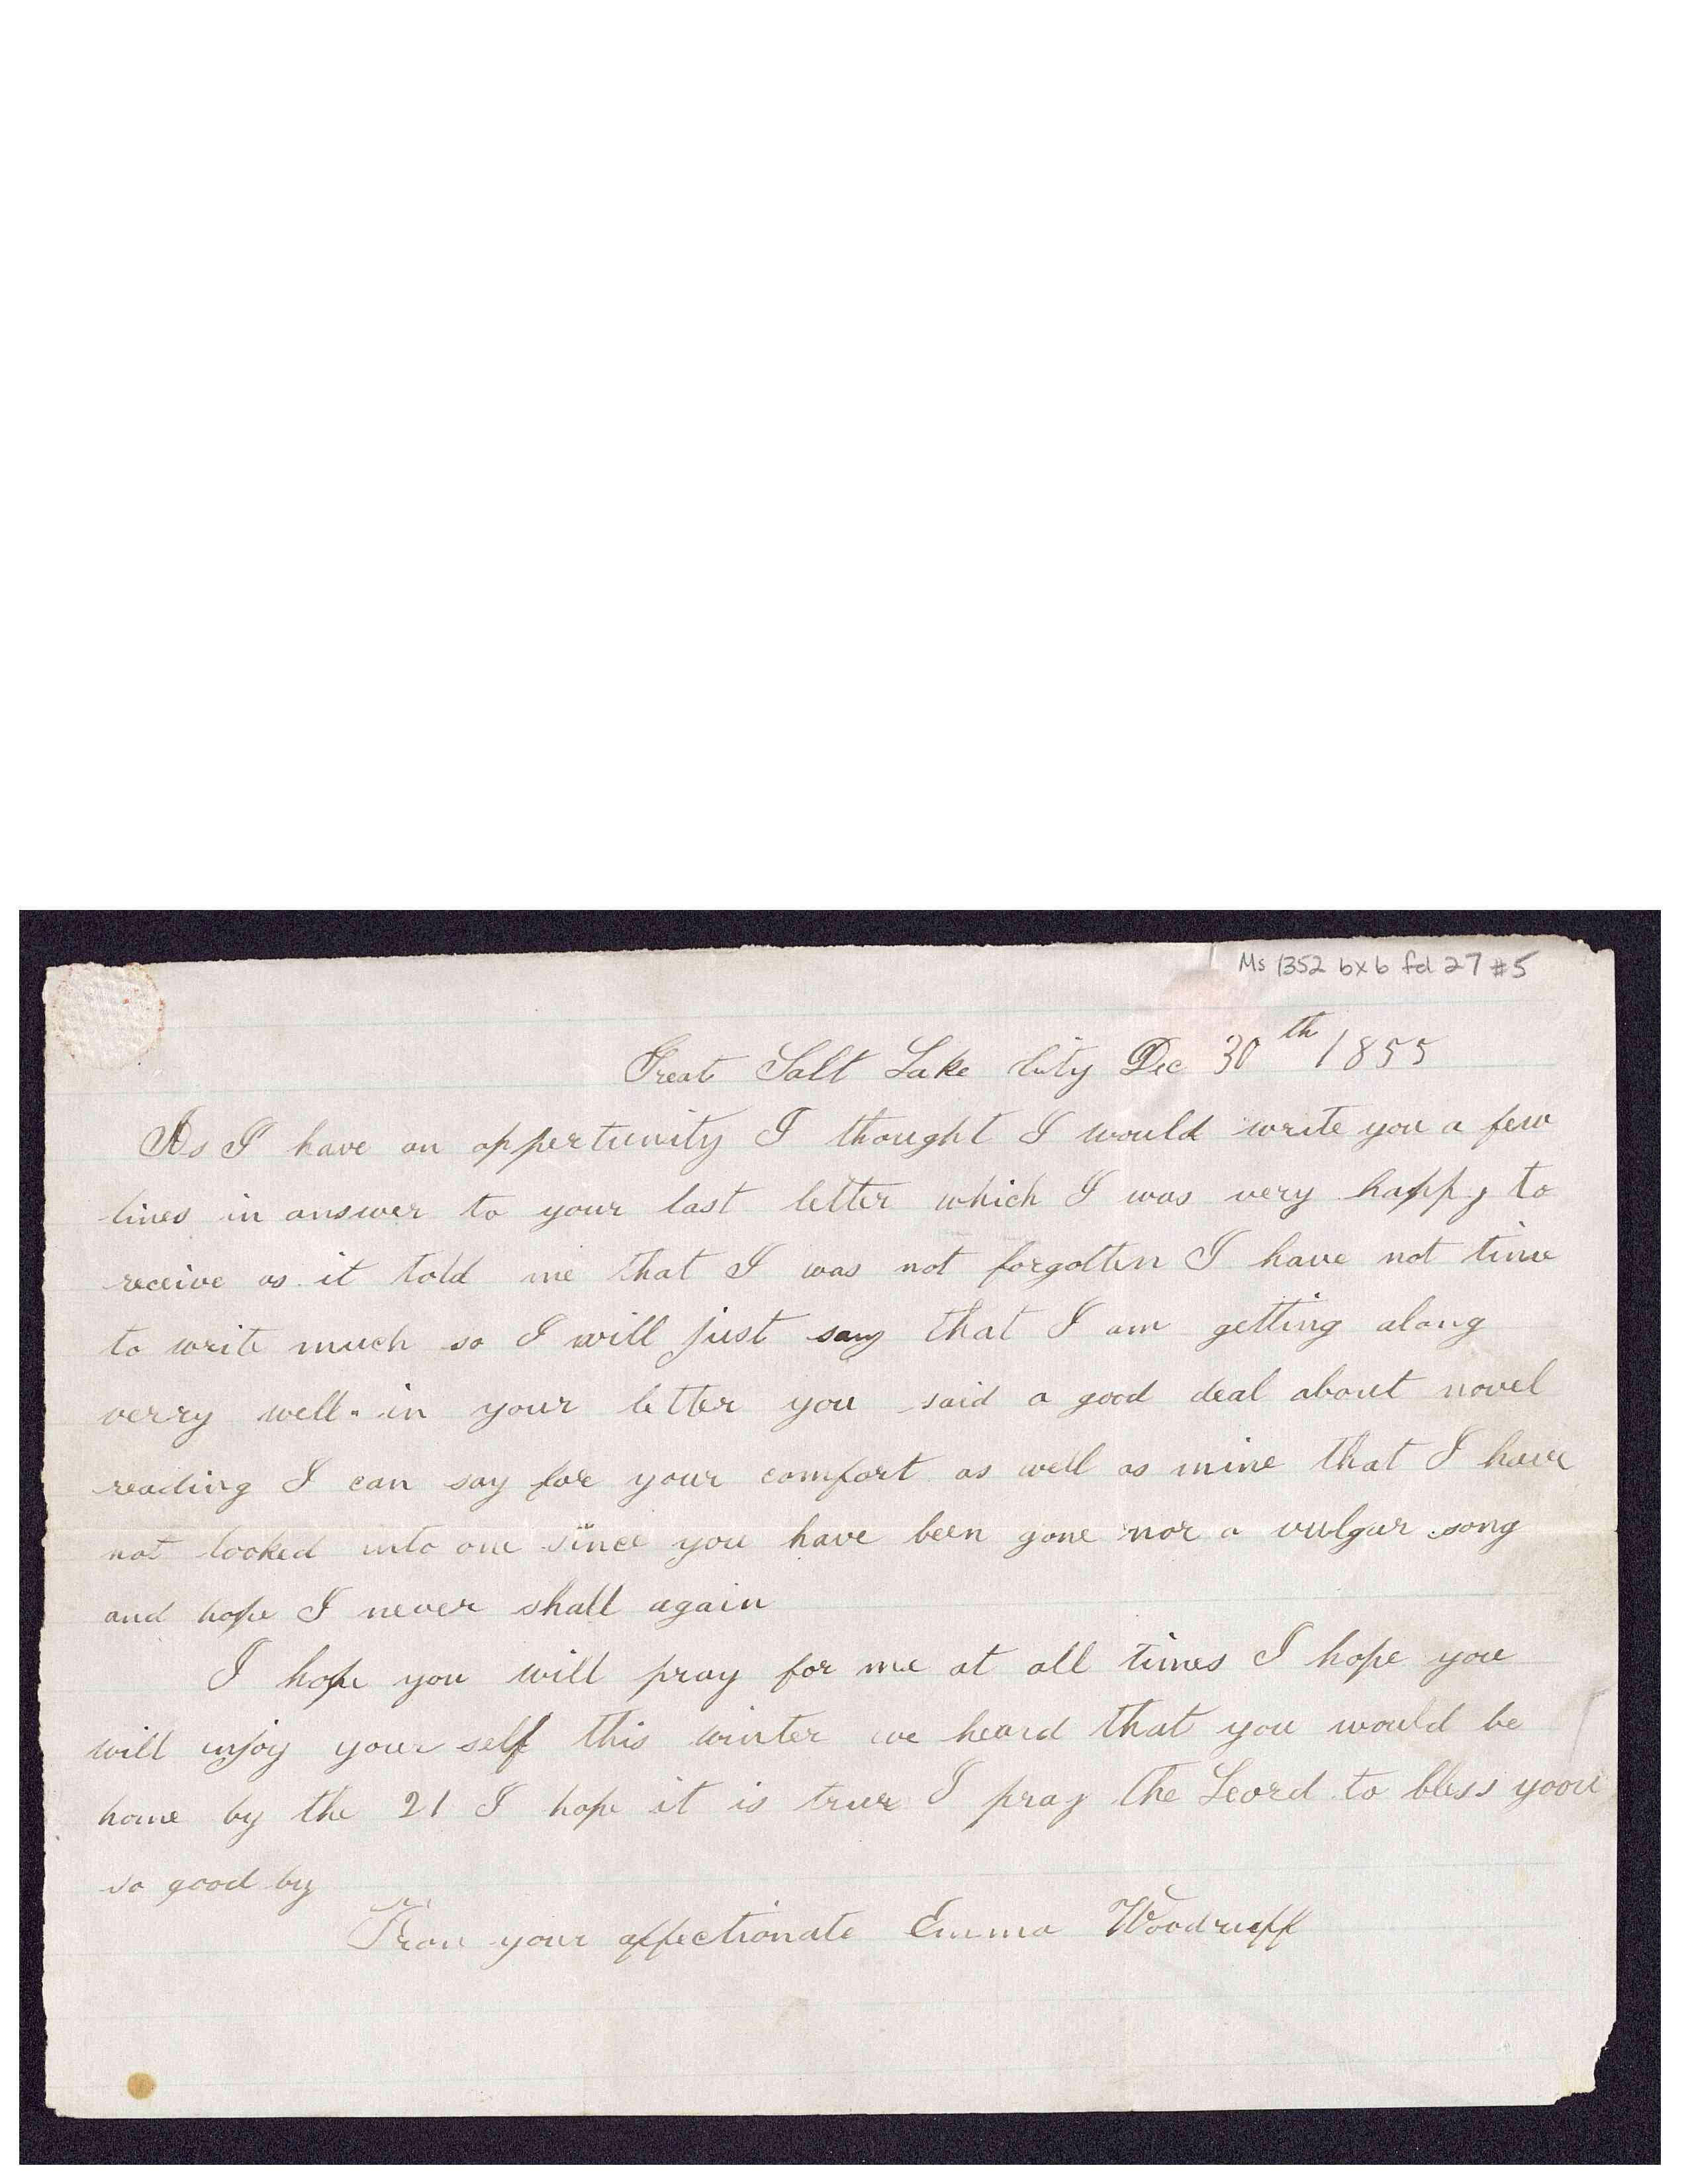 Ms 1352 bx 6 fd 27 #5
Great Salt Lake City Dec 30th 1855
As I have an oppertunity I thought I would write you a few
lines in answer to your last letter which I was very happy to
receive as it told me that I was not forgotten I have not time
to write much so I will just say that I am getting along
verry well. in your letter you said a good deal about novel
reading I can say for your comfort as well as mine that I have
not looked into one since you have been gone nor a vulgar song
and hope I never shall again
I hope you will pray for me at all times I hope you
will injoy your self this winter we heard that you would be
home by the 21 I hope it is true I pray the Leord to bless yoou
so good by
From your affectionate Emma Woodruff